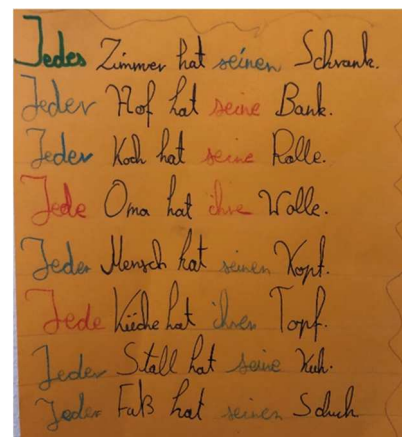 Jedes Zimmer hat seinen Schrank.
Jeder Hof hat seine Bank.
Jeder Koch hat seine Rolle.
Jede Oma hat ihre Wolle.
Jeder Mensch hat seinen Kopf.
Jede Küche hat ihren Topf.
Jeder Stall hat seine Kuh.
Jeder Fuß hat seinen Schuh